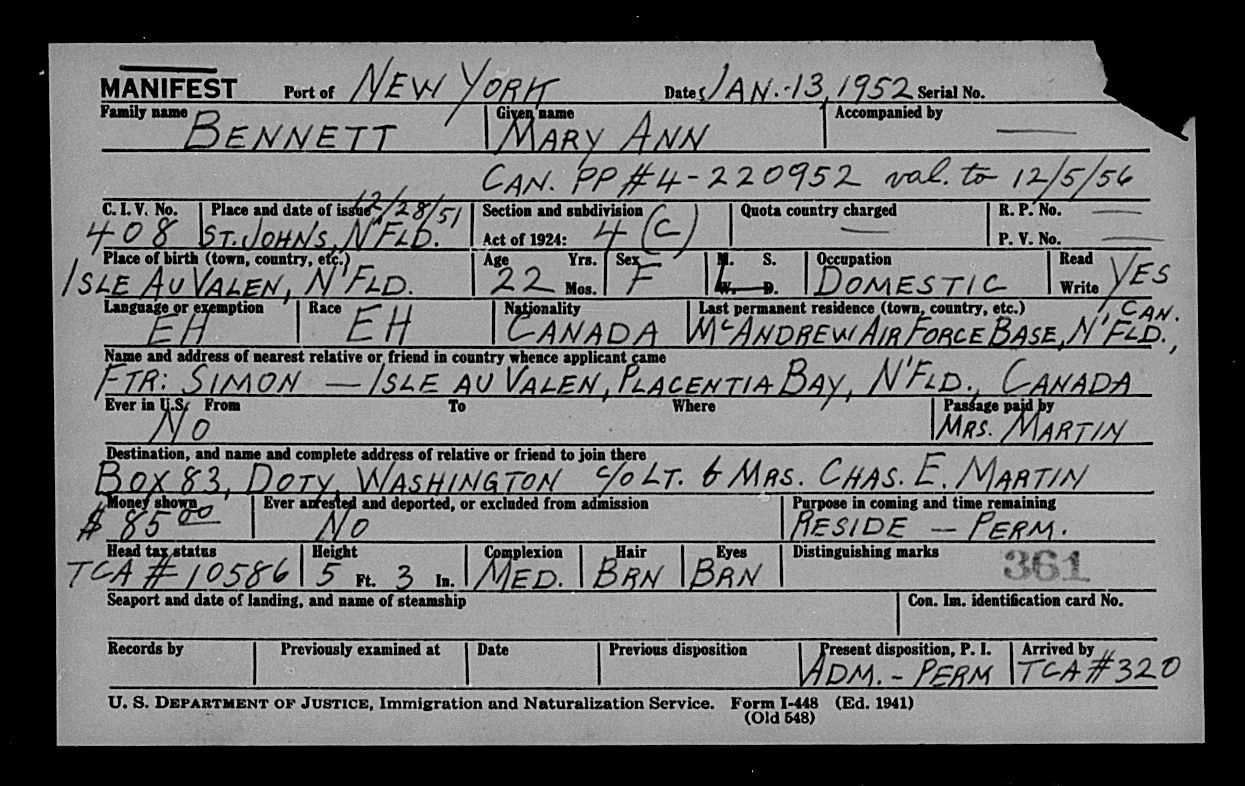 MANIFEST Port of NEW YORK Date JAN.-13, 1952 Serial No.
Family name BENNETT Given name MARY ANN Accompanied by —
CAN. PP #4-220952 val. to 12/5/56
C. I. V. No. Place and date of issue 12/28/51 Section and subdivision Quota country charged R. P. No. —
408 ST. JOHNS, N'FLD. Act of 1924: 4 (C) — P. V. No. —
Place of birth (town, country, etc.) Age Yrs. Sex M. S. Occupation Read
ISLE AU VALEN, N'FLD. 22 Mos. F W. D. DOMESTIC Write YES
Language or exemption Race Nationality Last permanent residence (town, country, etc.) CAN.
EH EH CANADA McANDREW AIR FORCE BASE, N'FLD.,
Name and address of nearest relative or friend in country whence applicant came
FTR: SIMON — ISLE AU VALEN, PLACENTIA BAY, N'FLD., CANADA
Ever in U.S. From To Where Passage paid by
NO MRS. MARTIN
Destination, and name and complete address of relative or friend to join there
BOX 83, DOTY, WASHINGTON c/o LT. & MRS. CHAS. E. MARTIN
Money shown Ever arrested and deported, or excluded from admission Purpose in coming and time remaining
$ 85 00 NO RESIDE — PERM.
Head tax status Height Complexion Hair Eyes Distinguishing marks
TCA #10586 5 Ft. 3 In. MED. BRN BRN 361
Seaport and date of landing, and name of steamship Con. Im. identification card No.
Records by Previously examined at Date Previous disposition Present disposition, P. I. Arrived by
ADM. - PERM TCA #320
U. S. DEPARTMENT OF JUSTICE, Immigration and Naturalization Service. Form I-448 (Ed. 1941)
(Old 548)